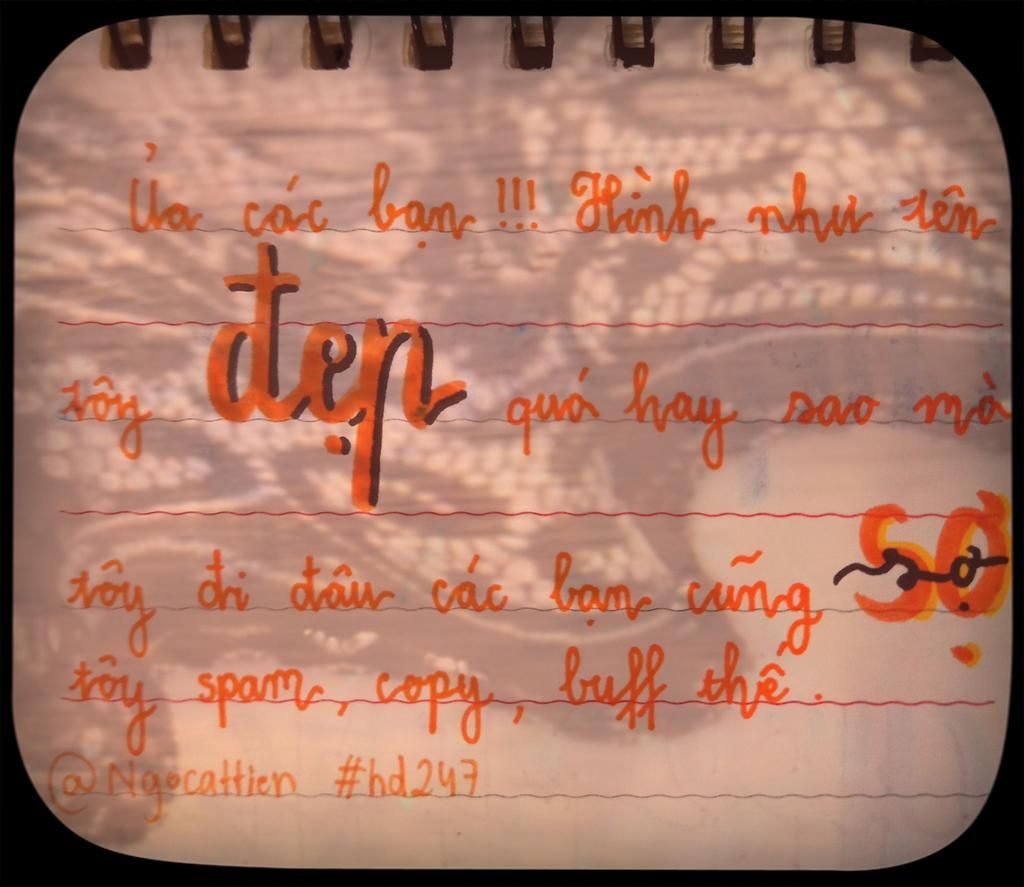 Ủa các bạn !!! Hình như tên
tôy đẹp quá hay sao mà
tôy đi đâu các bạn cũng sợ
tôy spam, copy, buff thế.
@Ngocattien #hd247